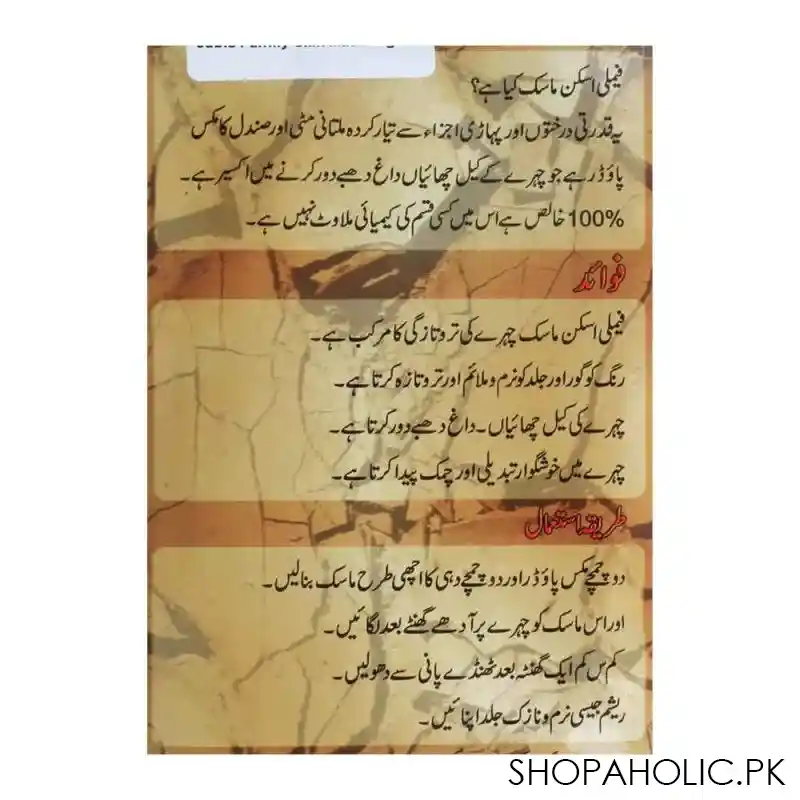 فیملی اسکن ماسک کیا ہے؟
یہ قدرتی درختوں اور پہاڑی اجزاء سے تیار کردہ ملتانی مٹی اور صندل کا مکس
پاؤڈر ہے جو چہرے کے کیل چھائیاں داغ دھبے دور کرنے میں اکسیر ہے۔
100% خالص ہے اس میں کسی قسم کی کیمیائی ملاوٹ نہیں ہے۔
فوائد
فیملی اسکن ماسک چہرے کی تروتازگی کا مرکب ہے۔
رنگ کو گورا اور جلد کو نرم و ملائم اور تروتازہ کرتا ہے۔
چہرے کی کیل چھائیاں۔ داغ دھبے دور کرتا ہے۔
چہرے میں خوشگوار تبدیلی اور چمک پیدا کرتا ہے۔
طریقہ استعمال
دو چمچے مکس پاؤڈر اور دو چمچے دہی کا اچھی طرح ماسک بنالیں۔
اور اس ماسک کو چہرے پر آدھے گھنٹے بعد لگائیں۔
کم س کم ایک گھنٹہ بعد ٹھنڈے پانی سے دھولیں۔
ریشم جیسی نرم و نازک جلد اپنائیں۔
SHOPAHOLIC.PK